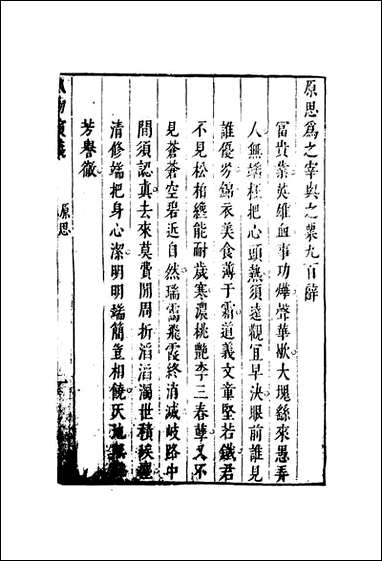 原思為之宰與之粟九百辭
富貴靠英雄血事功燁聲華歇大塊繇來愚弄
人無端枉把心頭熱須遠觀宜早決眼前誰見
誰優劣錦衣美食薄于霜道義文章堅若鐵君
不見松柏纏能耐歲寒濃桃艷李三春孽又不
見蒼蒼空碧近自然瑞靄飛霞終消滅歧路中
間須認真去來莫費閒周折滔滔濁世積候塵
清修端把身心潔明明端簡豈相饒天地
芳譽徹
原思